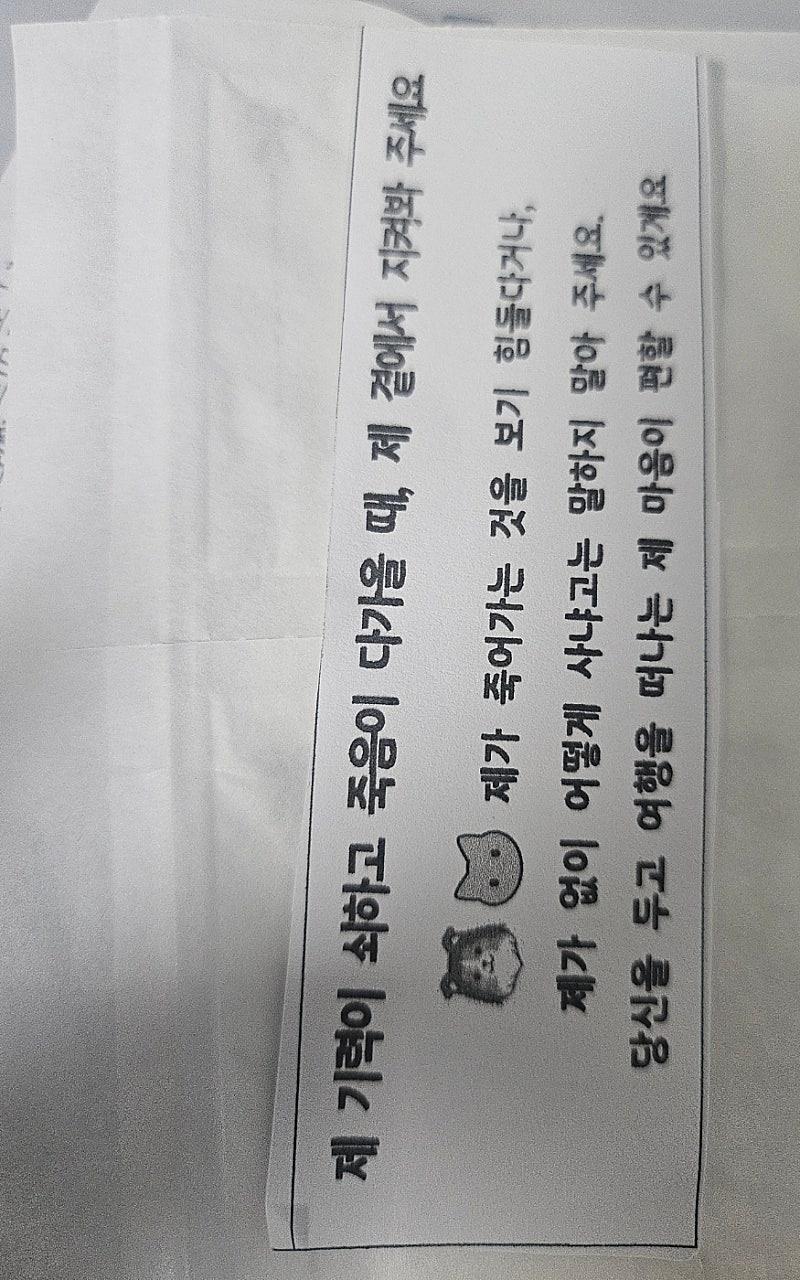 제 기력이 쇠하고 죽음이 다가올 때, 제 곁에서 지켜봐 주세요
제가 죽어가는 것을 보기 힘들다거나,
제가 없이 어떻게 사냐고는 말하지 말아 주세요.
당신을 두고 여행을 떠나는 제 마음이 편할 수 있게요